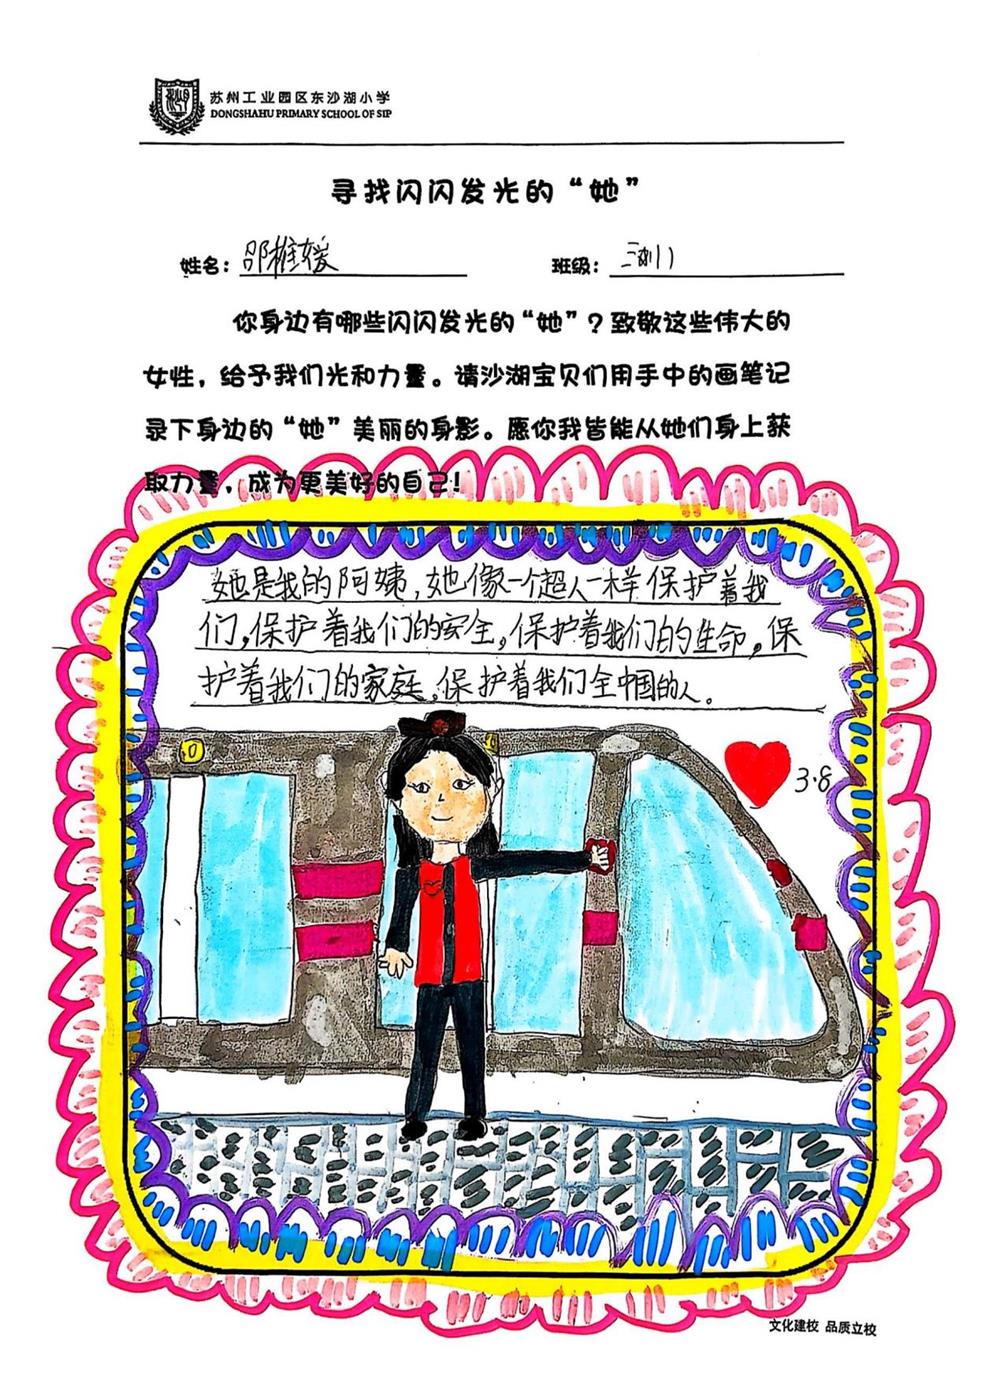 苏州工业园区东沙湖小学
DONGSHAHU PRIMARY SCHOOL OF SIP
寻找闪闪发光的“她”
姓名：邵雅媛 班级：
你身边有哪些闪闪发光的“她”？致敬这些伟大的
女性，给予我们光和力量。请沙湖宝贝们用手中的画笔记
录下身边的“她”美丽的身影。愿你我皆能从她们身上获
取力量，成为更美好的自己！
她是我的阿姨，她像一个超人一样保护着我
们，保护着我们的安全，保护着我们的生命，保
护着我们的家庭，保护着我们全中国的人。
3·8
文化建校 品质立校